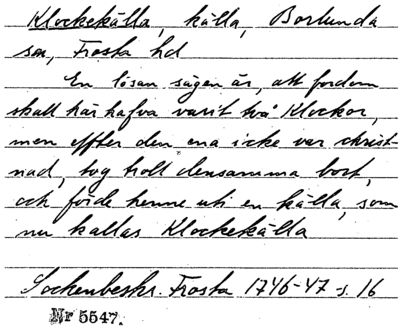 Klockekälla, källa, Borlunda
sn, Frosta hd
En lösan sägen är, att fordom
skall här hafva varit två Klockor,
men effter den ena icke var christ-
nad, tog troll densamma bort,
och förde henne uti en källa, som
nu kallas Klockekälla
Sockenbeskr. Frosta 1746-47 s. 16
Nr 5547.